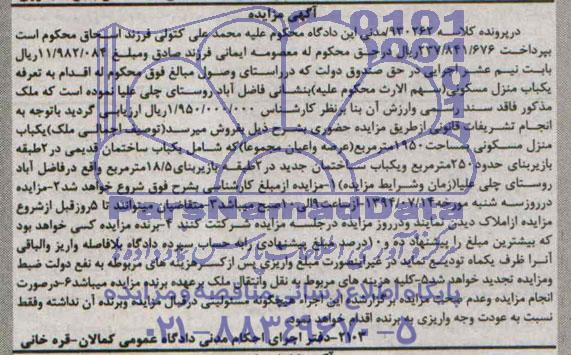 آگهی مزایده
درپرونده کلاسه ۹۳۰۲۶۲/مدنی این دادگاه محکوم علیه محمد علی کتولی فرزند اسحاق محکوم است
بپرداخت ۲۳۷/۸۴۱/۶۷۶ریال درحق محکوم له معصومه ایمانی فرزند صادق ومبلغ ۱۱/۹۸۲/۰۸۴ریال
بابت نیم عشر اجرایی در حق صندوق دولت که درراستای وصول مبالغ فوق محکوم له اقدام به تعرفه
یکباب منزل مسکونی(سهم الارث محکوم علیه)بنشانی فاضل آباد روستای چلی علیا نموده است که ملک
مذکور فاقد سند رسمی وارزش آن بنا برنظر کارشناس ۱/۹۵۰/۰۰۰/۰۰۰ریال ارزیابی گردید باتوجه به
انجام تشریفات قانونی ازطریق مزایده حضوری بشرح ذیل بفروش میرسد(توصیف اجمالی ملک)یکباب
منزل مسکونی بمساحت ۱۹۵۰مترمربع(عرصه واعیان مجموعا)که شامل یکباب ساختمان قدیمی در۲طبقه
بازیربنای حدود۲۵۰مترمربع ویکباب ساختمان جدید در۲طبقه بازیربنای۱۸/۵مترمربع واقع درفاضل آباد
روستای چلی علیا(زمان وشرایط مزایده)۱-مزایده ازمبلغ کارشناسی بشرح فوق شروع خواهد شد۲-مزایده
درروزسه شنبه مورخه۱۳۹۴/۰۷/۱۴ازساعت۹الی۱۰صبح میباشد۳-متقاضیان میتوانند تا ۵روزقبل ازشروع
مزایده ازاملاک دیدن نمایند ودرروز مزایده درجلسه مزایده شرکت کنند ۴-برنده مزایده کسی خواهد بود
که بیشترین مبلغ را پیشنهاد ده و۱۰درصد مبلغ پیشنهادی رابه حساب سپرده دادگاه بلافاصله واریز والباقی
آنرا ظرف یکماه تودیع نماید در غیراینصورت مبلغ واریزی پس ازکسرهزینه های مربوطه به نفع دولت ضبط
ومزایده تجدید خواهد شد۵-کلیه هزینه های مربوط به نقل وانتقال ملک برعهده برنده مزایده میباشد۶-درصورت
انجام مزایده وعدم صحت مزایده برگزارشده این اجراء هیچگونه مسئولیتی درقبال مزایده وبرنده آن نداشته وفقط
نسبت به عودت وجه واریزی به برنده اقدام خواهد نمود.
۲۱۰۳-دفتر اجرای احکام مدنی دادگاه عمومی کمالان-قره خانی
ParsNamadData
۰۲۱-۸۸۳۴۹۶۷۰-۵